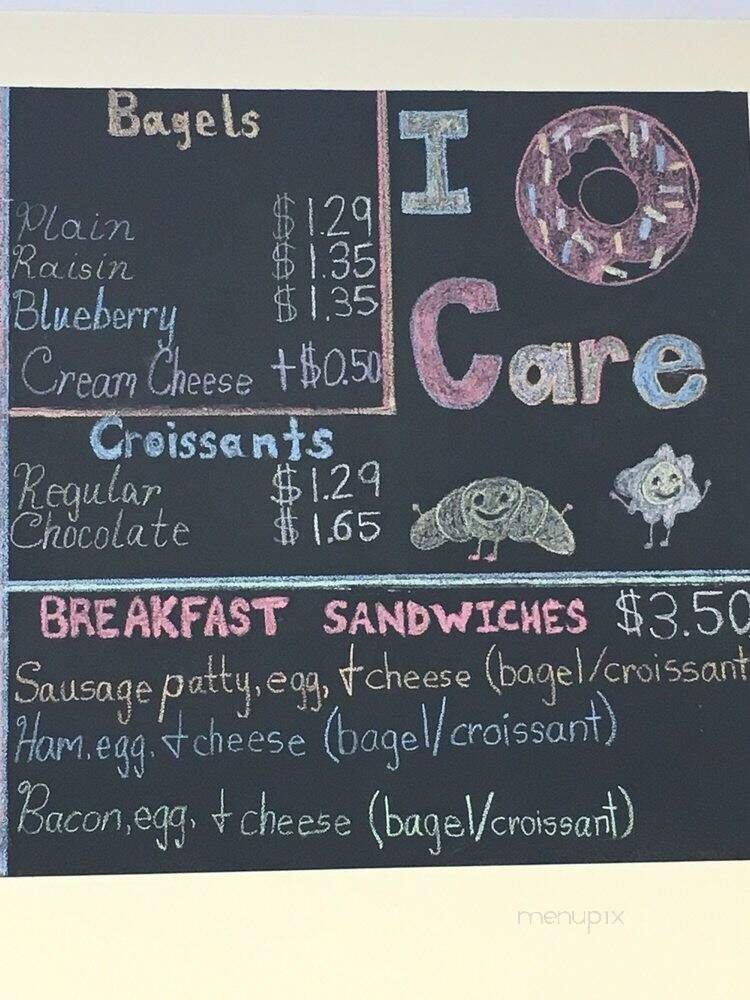 Bagels
Plain $1.29
Raisin $1.35
Blueberry $1.35
Cream Cheese +$0.50
I
Care
Croissants
Regular $1.29
Chocolate $1.65
BREAKFAST SANDWICHES $3.50
Sausage patty, egg, + cheese (bagel/croissant
Ham, egg, + cheese (bagel/croissant)
Bacon, egg, + cheese (bagel/croissant)
menupix